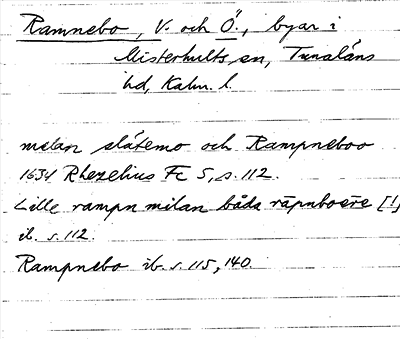 Ramnebo, V. och Ö., byar i
Misterhults sn, Tunaläns
hd, Kalm. l.
melan slätemo och Rampneboo
1634 Rhezelius Fc 5, s. 112.
Lille rampn milan båda råpnboëre [!]
ib. s. 112.
Rampnebo ib. s. 115, 140.